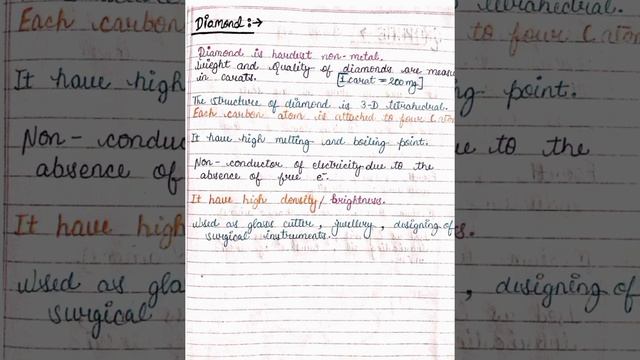 Diamond :→
Diamond is hardest non-metal.
Weight and quality of diamonds are measu
in carats. [1 carat = 200 mg]
The structure of diamond is 3-D tetrahedral.
Each carbon atom is attached to four C atom
It have high melting and boiling point.
Non-conductor of electricity due to the
absence of free e⁻.
It have high density/ brightness.
Used as glass cutter, jwellery, designing of
surgical instruments.